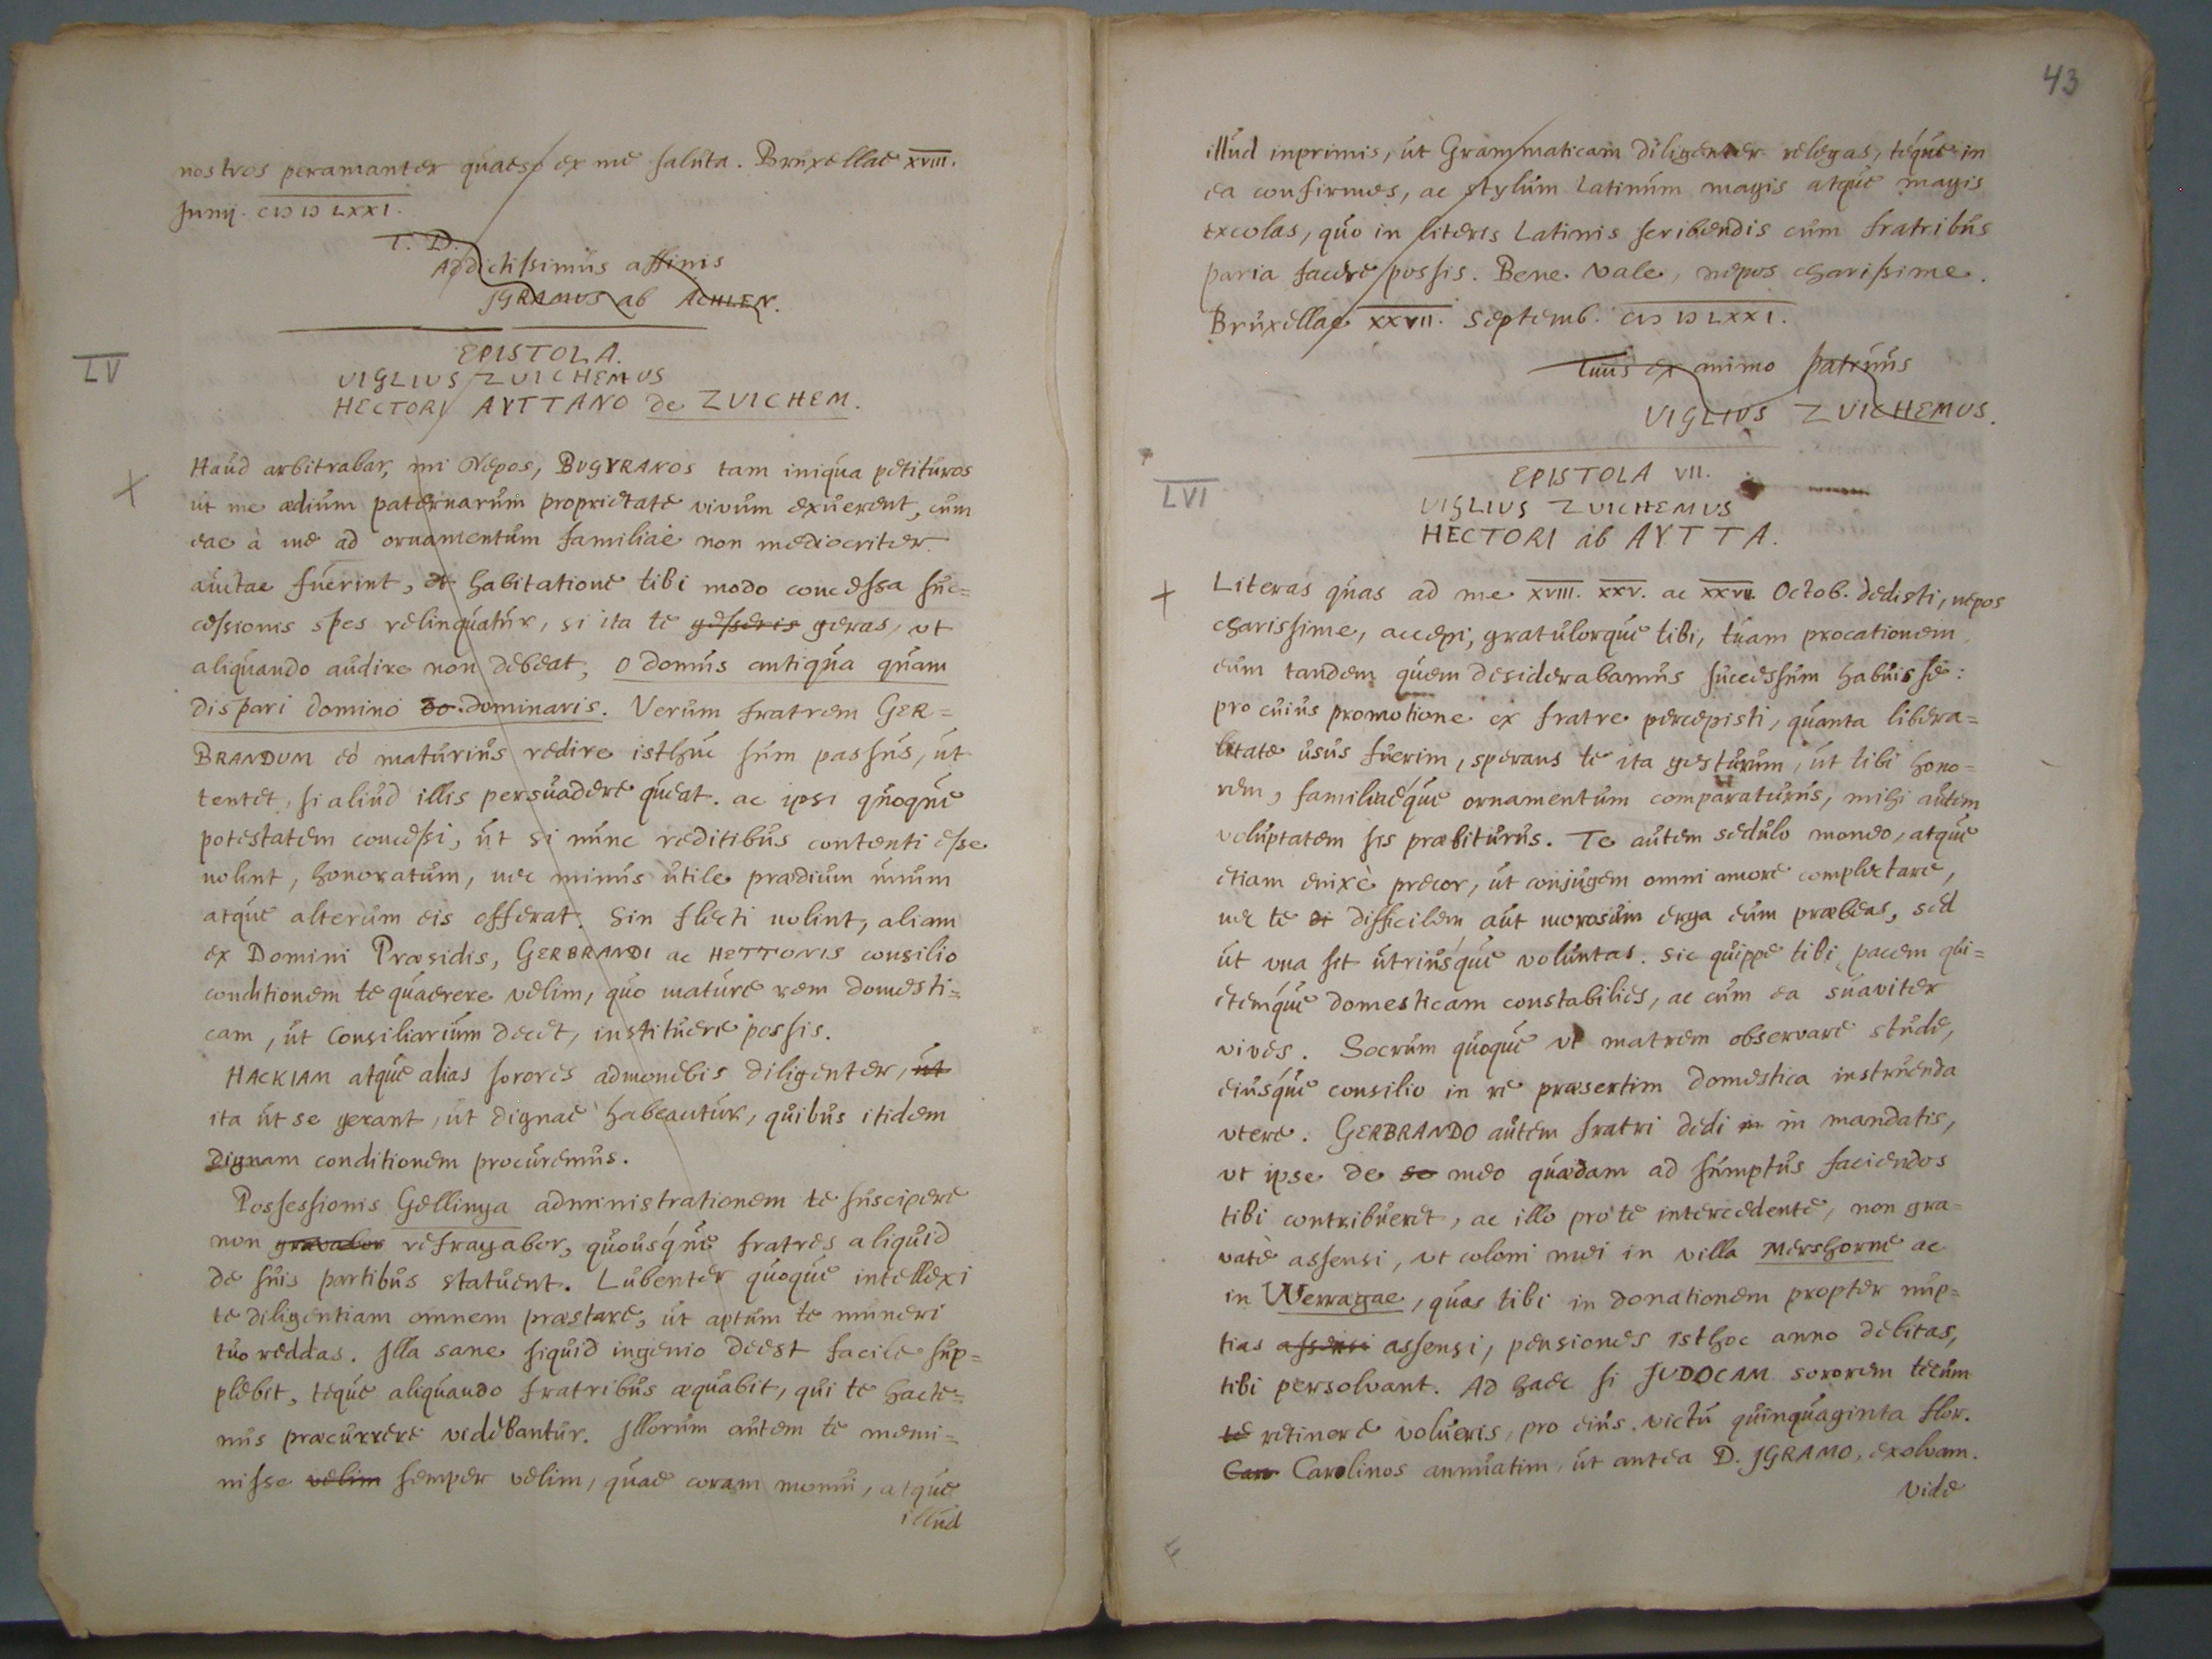 nostros peramanter quaeso ex me saluta. Bruxellae XVIII.
Junij. CIↃ IↃ LXXI.
T. D.
Addictissimus affinis
JGRAMUS ab ACHLEN.
LV
EPISTOLA.
VIGLIUS ZUICHEMUS
HECTORI AYTTANO de ZUICHEM.
Haud arbitrabar, mi Nepos, BUGYRANOS tam iniqua petituros
ut me ædium paternarum proprietate vivum exuerent, cum
eae à me ad ornamentum familiae non mediocriter
auctae fuerint, et habitatione tibi modo concessa suc=
cessionis spes relinquatur, si ita te gesseris geras, ut
aliquando audire non debeat, O domus antiqua quam
dispari domino do dominaris. Verum fratrem GER=
BRANDUM eò maturius redire isthuc sum passus, ut
tentet, si aliud illis persuadere queat. ac ipsi quoque
potestatem concessi, ut si nunc reditibus contenti esse
nolint, honoratum, nec minus utile prædium unum
atque alterum eis offerat. Sin flecti nolint, aliam
ex Domini Præsidis, GERBRANDI ac HETTONIS consilio
conditionem te quaerere velim, quo mature rem domesti=
cam, ut Consiliarium decet, instituere possis.
HACKIAM atque alias sorores admonebis diligenter, ut
ita ut se gerant, ut dignae habeantur, quibus itidem
dignam conditionem procuremus.
Possessionis Gellinga administrationem te suscipere
non gravabor refragabor, quousque fratres aliquid
de suis partibus statuent. Lubenter quoque intellexi
te diligentiam omnem præstare, ut aptum te muneri
tuo reddas. Illa sane siquid ingenio deest facile sup=
plebit, teque aliquando fratribus æquabit, qui te hacte=
nus præcurrere videbantur. Illorum autem te memi=
nisse velim semper velim, quae coram monui, atque
illud
43
illud inprimis, ut Grammaticam diligenter relegas, teque in
ea confirmes, ac stylum Latinum magis atque magis
excolas, quo in literis Latinis scribendis cum fratribus
paria facere possis. Bene vale, nepos charissime.
Bruxellae XXVII. Septemb. CIↃ IↃ LXXI.
Tuus ex animo patruus
VIGLIUS ZUICHEMUS.
LVI
EPISTOLA VII.
VIGLIUS ZUICHEMUS
HECTORI ab AYTTA.
Literas quas ad me XVIII. XXV. ac XXVII. Octob. dedisti, nepos
charissime, accepi, gratulorque tibi, tuam procationem
eum tandem quem desiderabamus successum habuisse:
pro cuius promotione ex fratre percepisti, quanta libera=
litate usus fuerim, sperans te ita gesturum, ut tibi hono=
rem, familiaeque ornamentum comparaturus, mihi autem
voluptatem sis præbiturus. Te autem sedulo moneo, atque
etiam enixè precor, ut conjugem omni amore complectare,
nec te et difficilem aut morosum erga eum præbeas, sed
ut una sit utriusque voluntas. Sic quippe tibi pacem qui=
etemque domesticam constabilies, ac cum ea suaviter
vives. Socrum quoque ut matrem observare stude,
eiusque consilio in re præsertim domestica instruenda
utere. GERBRANDO autem fratri dedi in in mandatis,
ut ipse de se meo quædam ad sumptus faciendos
tibi contribueret, ac illo pro te intercedente, non gra=
vatè assensi, ut coloni mei in villa Mershorne ac
in Werragae, quas tibi in donationem propter nup=
tias assensi assensi, pensiones isthoc anno debitas,
tibi persolvant. Ad haec si JUDOCAM sororem tecum
te retinere volueris, pro eius victu quinquaginta flor.
Car Carolinos annuatim, ut antea D. JGRAMO, exolvam.
Vide